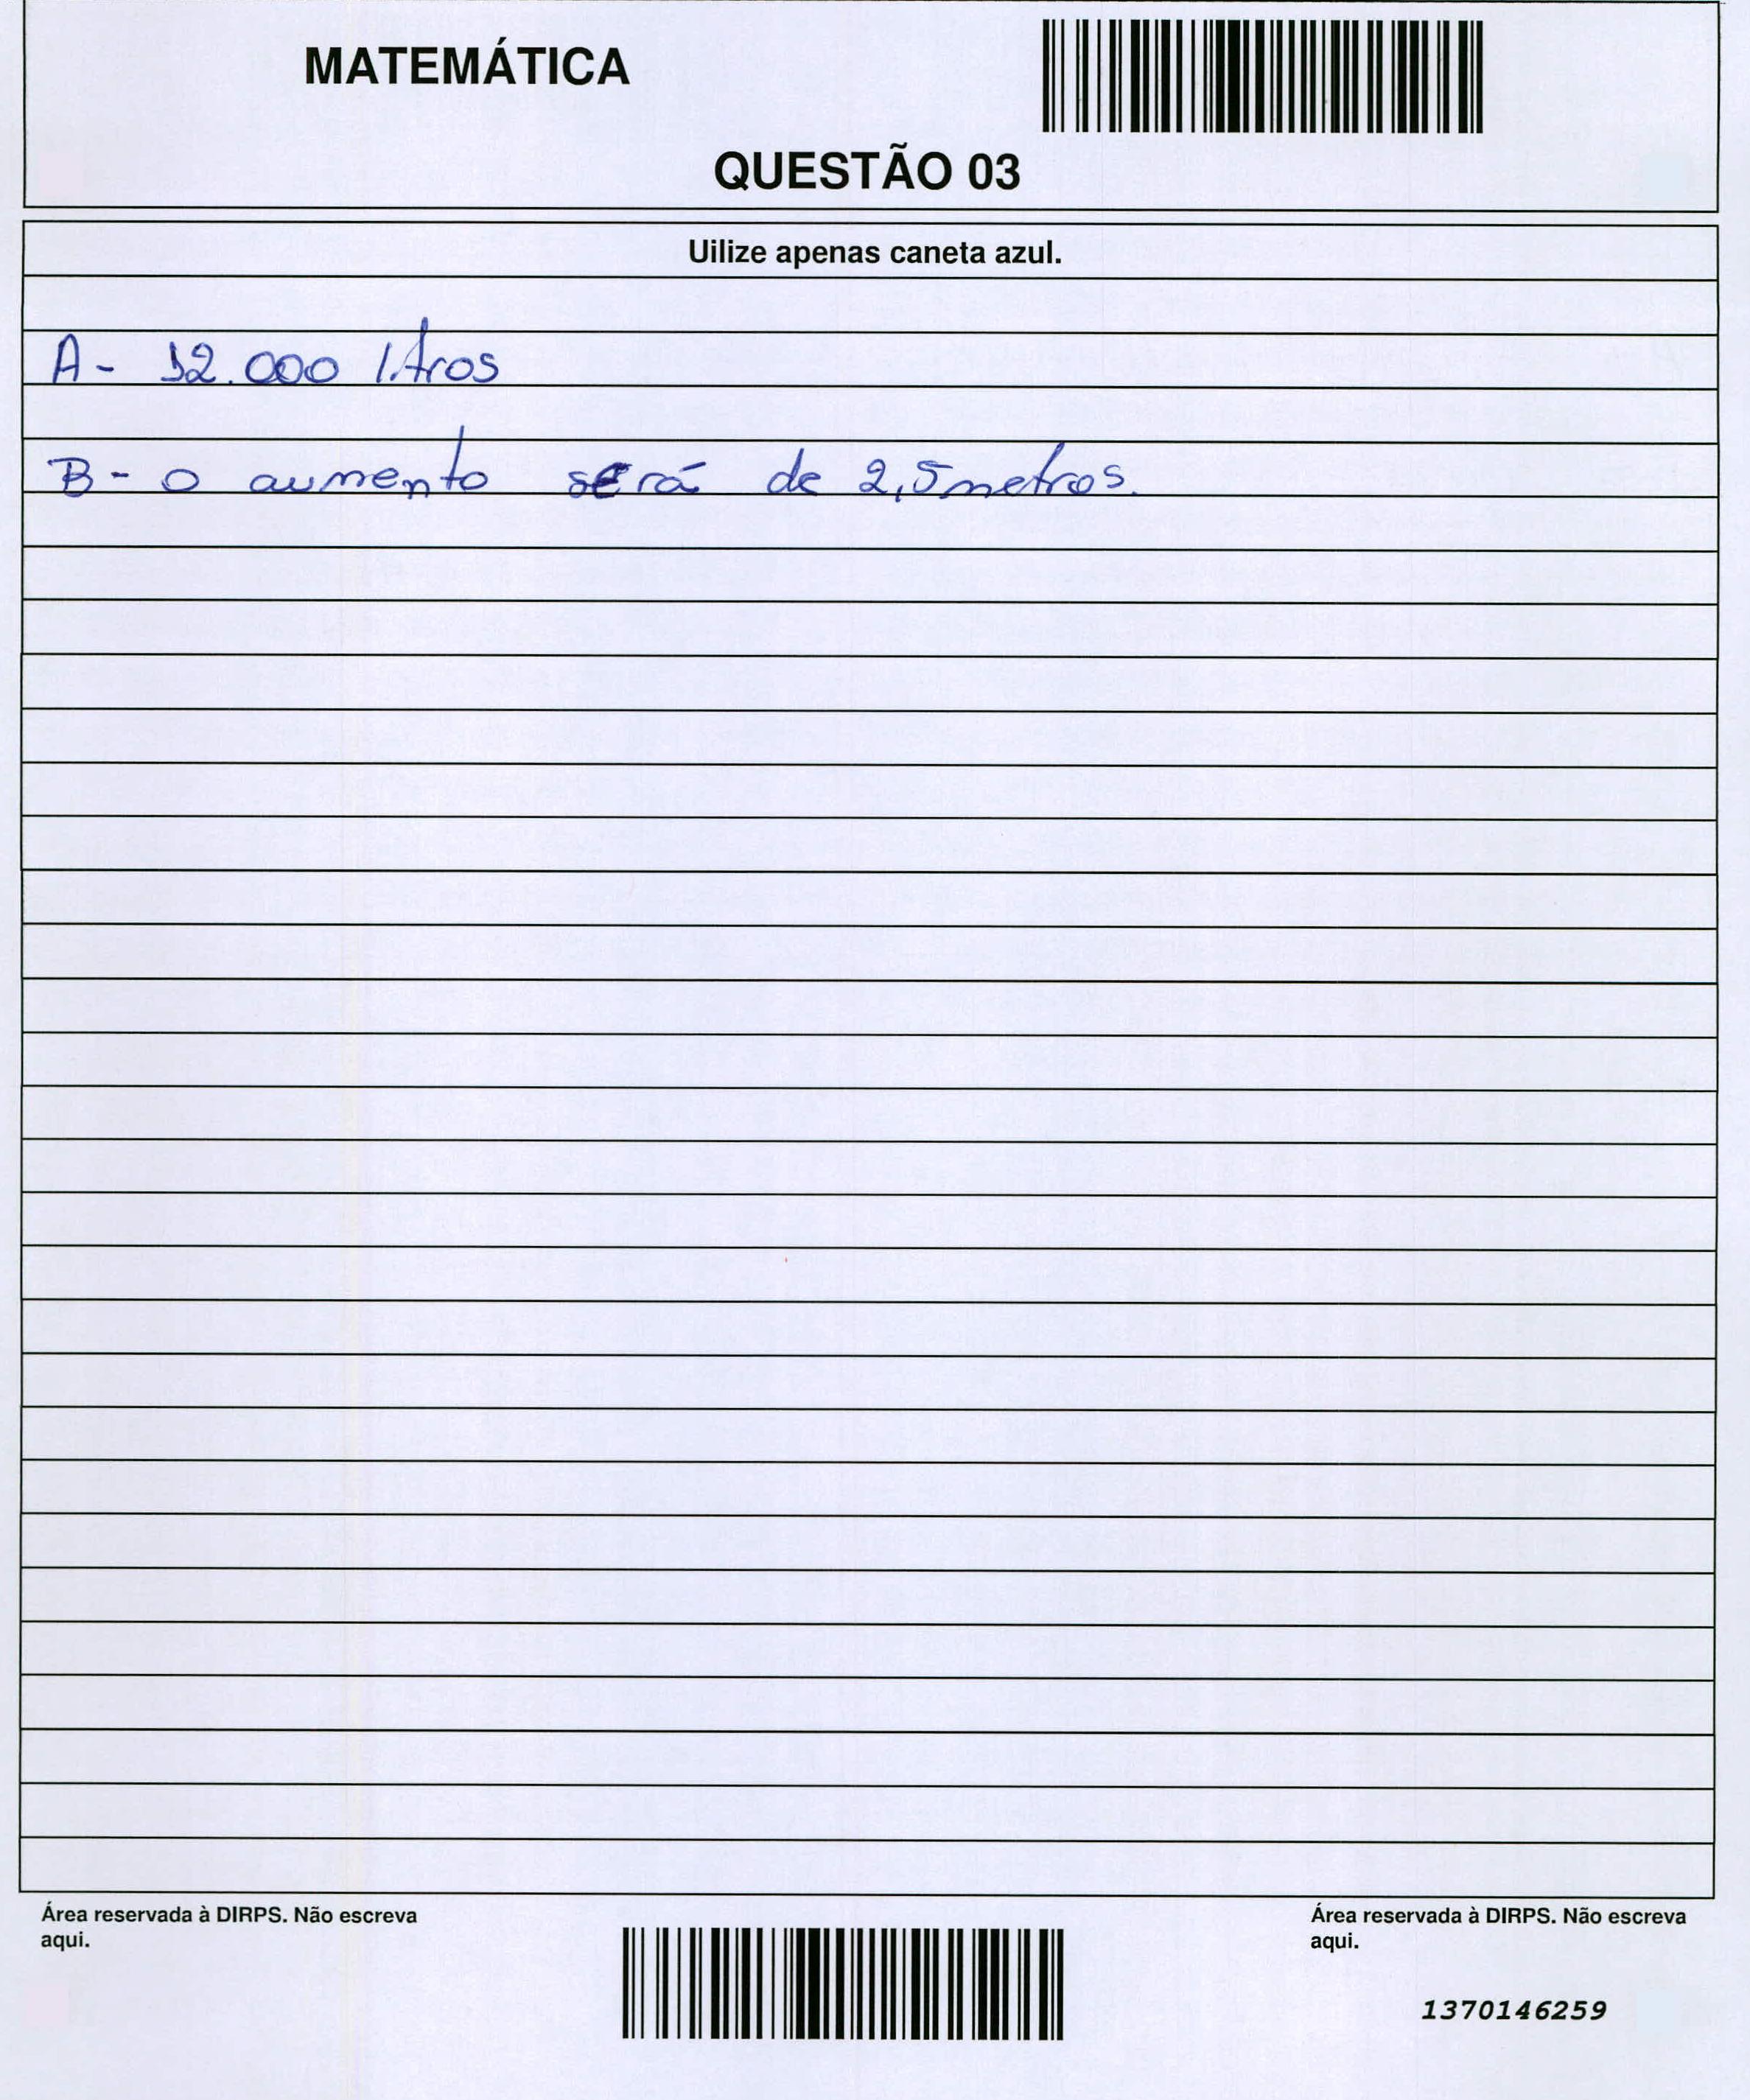 MATEMÁTICA
QUESTÃO 03
Uilize apenas caneta azul.
A- 12.000 litros
B- O aumento será de 2,5 metros.
Área reservada à DIRPS. Não escreva
aqui.
Área reservada à DIRPS. Não escreva
aqui.
1370146259